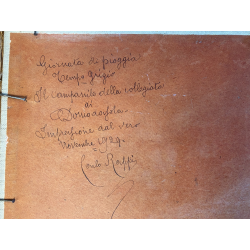 Giornata di pioggia
Tempo grigio
Il campanile della collegiata
di
Domodossola
Impressione dal vero
novembre 1929
Carlo